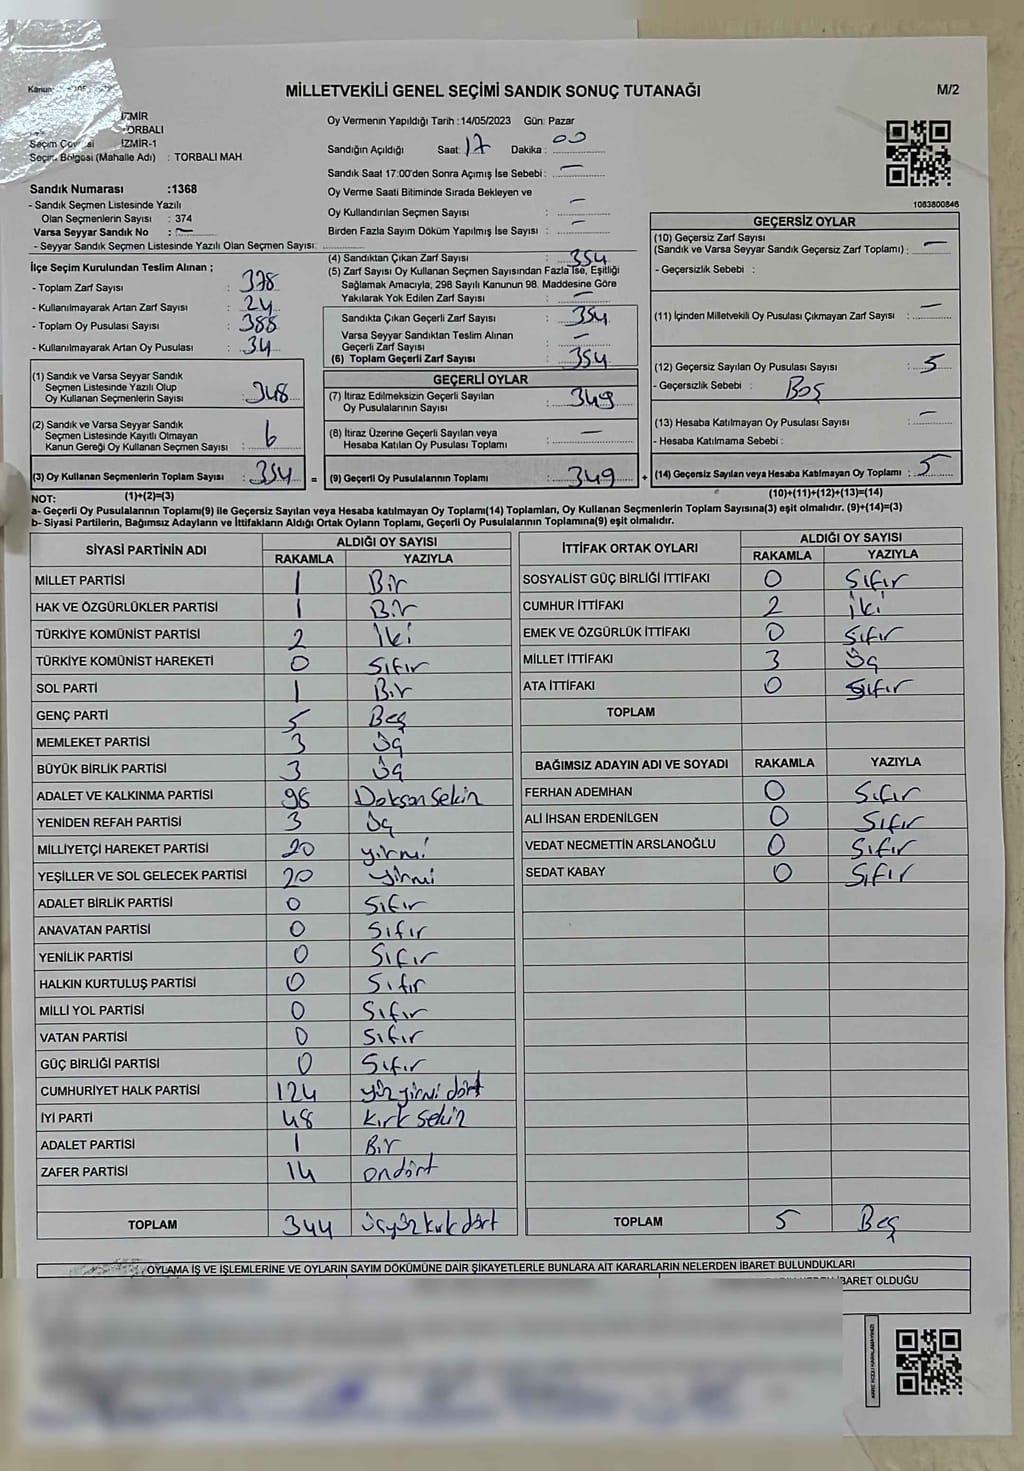 MİLLETVEKİLİ GENEL SEÇİMİ SANDIK SONUÇ TUTANAĞI
M/2
Kanun
İZMİR
TORBALI
Seçim Çevresi İZMİR-1
Seçim Bölgesi (Mahalle Adı) : TORBALI MAH.
Sandık Numarası :1368
- Sandık Seçmen Listesinde Yazılı
Olan Seçmenlerin Sayısı : 374
Varsa Seyyar Sandık No : —
- Seyyar Sandık Seçmen Listesinde Yazılı Olan Seçmen Sayısı:
Oy Vermenin Yapıldığı Tarih :14/05/2023 Gün: Pazar
Sandığın Açıldığı Saat: 17 Dakika : 00
Sandık Saat 17:00'den Sonra Açımış İse Sebebi : —
Oy Verme Saati Bitiminde Sırada Bekleyen ve
Oy Kullandırılan Seçmen Sayısı : —
Birden Fazla Sayım Döküm Yapılmış İse Sayısı : —
1083800846
İlçe Seçim Kurulundan Teslim Alınan ;
- Toplam Zarf Sayısı : 378
- Kullanılmayarak Artan Zarf Sayısı : 24
- Toplam Oy Pusulası Sayısı : 388
- Kullanılmayarak Artan Oy Pusulası : 34
(1) Sandık ve Varsa Seyyar Sandık
Seçmen Listesinde Yazılı Olup
Oy Kullanan Seçmenlerin Sayısı : 348
(2) Sandık ve Varsa Seyyar Sandık
Seçmen Listesinde Kayıtlı Olmayan
Kanun Gereği Oy Kullanan Seçmen Sayısı : 6
(3) Oy Kullanan Seçmenlerin Toplam Sayısı : 354 =
(4) Sandıktan Çıkan Zarf Sayısı : 354
(5) Zarf Sayısı Oy Kullanan Seçmen Sayısından Fazla İse, Eşitliği
Sağlamak Amacıyla; 298 Sayılı Kanunun 98. Maddesine Göre
Yakılarak Yok Edilen Zarf Sayısı : —
Sandıkta Çıkan Geçerli Zarf Sayısı : 354
Varsa Seyyar Sandıktan Teslim Alınan
Geçerli Zarf Sayısı : —
(6) Toplam Geçerli Zarf Sayısı : 354
GEÇERLİ OYLAR
(7) İtiraz Edilmeksizin Geçerli Sayılan
Oy Pusulalarının Sayısı : 349
(8) İtiraz Üzerine Geçerli Sayılan veya
Hesaba Katılan Oy Pusulası Toplamı : —
(9) Geçerli Oy Pusulalarının Toplamı : 349 +
GEÇERSİZ OYLAR
(10) Geçersiz Zarf Sayısı
(Sandık ve Varsa Seyyar Sandık Geçersiz Zarf Toplamı) : —
- Geçersizlik Sebebi :
(11) İçinden Milletvekili Oy Pusulası Çıkmayan Zarf Sayısı : —
(12) Geçersiz Sayılan Oy Pusulası Sayısı : 5
- Geçersizlik Sebebi : Boş
(13) Hesaba Katılmayan Oy Pusulası Sayısı : —
- Hesaba Katılmama Sebebi :
(14) Geçersiz Sayılan veya Hesaba Katılmayan Oy Toplamı : 5
(10)+(11)+(12)+(13)=(14)
NOT: (1)+(2)=(3)
a- Geçerli Oy Pusulalarının Toplamı(9) ile Geçersiz Sayılan veya Hesaba katılmayan Oy Toplamı(14) Toplamları, Oy Kullanan Seçmenlerin Toplam Sayısına(3) eşit olmalıdır. (9)+(14)=(3)
b- Siyasi Partilerin, Bağımsız Adayların ve İttifakların Aldığı Ortak Oyların Toplamı, Geçerli Oy Pusulalarının Toplamına(9) eşit olmalıdır.
SİYASİ PARTİNİN ADI ALDIĞI OY SAYISI
RAKAMLA YAZIYLA
MİLLET PARTİSİ 1 Bir
HAK VE ÖZGÜRLÜKLER PARTİSİ 1 Bir
TÜRKİYE KOMÜNİST PARTİSİ 2 İki
TÜRKİYE KOMÜNİST HAREKETİ 0 Sıfır
SOL PARTİ 1 Bir
GENÇ PARTİ 5 Beş
MEMLEKET PARTİSİ 3 Üç
BÜYÜK BİRLİK PARTİSİ 3 Üç
ADALET VE KALKINMA PARTİSİ 98 Doksan Sekiz
YENİDEN REFAH PARTİSİ 3 Üç
MİLLİYETÇİ HAREKET PARTİSİ 20 yirmi
YEŞİLLER VE SOL GELECEK PARTİSİ 20 yirmi
ADALET BİRLİK PARTİSİ 0 Sıfır
ANAVATAN PARTİSİ 0 Sıfır
YENİLİK PARTİSİ 0 Sıfır
HALKIN KURTULUŞ PARTİSİ 0 Sıfır
MİLLİ YOL PARTİSİ 0 Sıfır
VATAN PARTİSİ 0 Sıfır
GÜÇ BİRLİĞİ PARTİSİ 0 Sıfır
CUMHURİYET HALK PARTİSİ 124 yüz yirmi dört
İYİ PARTİ 48 Kırk sekiz
ADALET PARTİSİ 1 Bir
ZAFER PARTİSİ 14 ondört
TOPLAM 344 üçyüz kırk dört
İTTİFAK ORTAK OYLARI ALDIĞI OY SAYISI
RAKAMLA YAZIYLA
SOSYALİST GÜÇ BİRLİĞİ İTTİFAKI 0 Sıfır
CUMHUR İTTİFAKI 2 İki
EMEK VE ÖZGÜRLÜK İTTİFAKI 0 Sıfır
MİLLET İTTİFAKI 3 Üç
ATA İTTİFAKI 0 Sıfır
TOPLAM
BAĞIMSIZ ADAYIN ADI VE SOYADI RAKAMLA YAZIYLA
FERHAN ADEMHAN 0 Sıfır
ALİ İHSAN ERDENİLGEN 0 Sıfır
VEDAT NECMETTİN ARSLANOĞLU 0 Sıfır
SEDAT KABAY 0 Sıfır
TOPLAM 5 Beş
OYLAMA İŞ VE İŞLEMLERİNE VE OYLARIN SAYIM DÖKÜMÜNE DAİR ŞİKAYETLERLE BUNLARA AİT KARARLARIN NELERDEN İBARET BULUNDUKLARI
İBARET OLDUĞU
KARE KODU KARALAMAYINIZ!